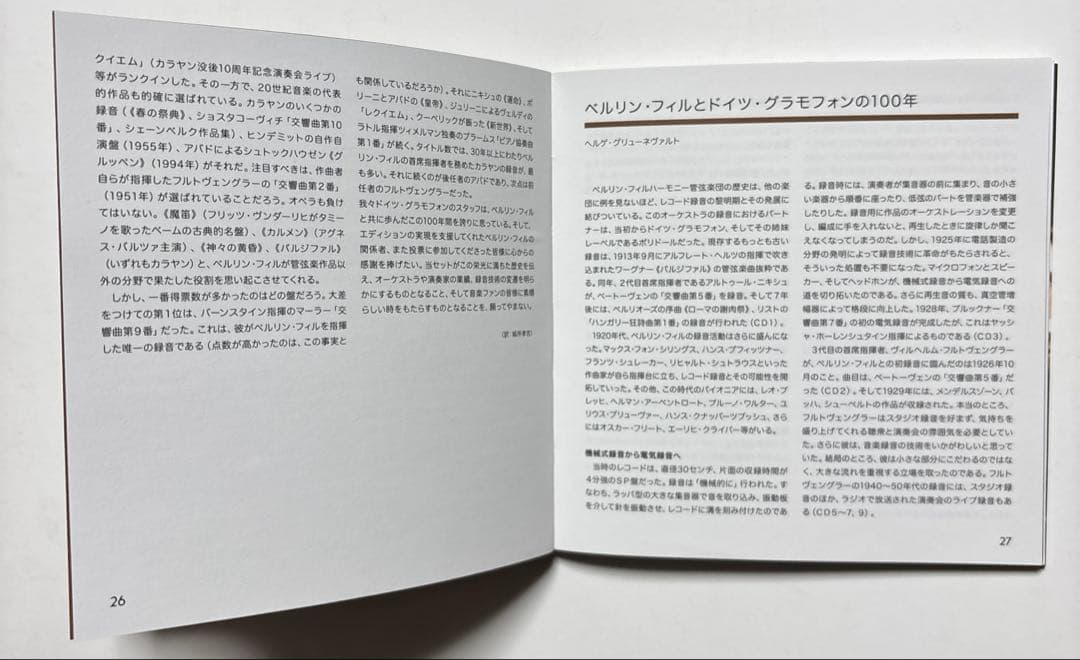 クイエム」(カラヤン没後10周年記念演奏会ライブ)
等がランクインした。その一方で、20世紀音楽の代表
的作品も的確に選ばれている。カラヤンのいくつかの
録音(《春の祭典》、ショスタコーヴィチ「交響曲第10
番」、シェーンベルク作品集)、ヒンデミットの自作自
演盤(1955年)、アバドによるシュトックハウゼン《グ
ルッペン》(1994年)がそれだ。注目すべきは、作曲者
自らが指揮したフルトヴェングラーの「交響曲第2番」
(1951年)が選ばれていることだろう。オペラも負け
てはいない。《魔笛》(フリッツ・ヴンダーリヒがタミー
ノを歌ったベームの古典的名盤)、《カルメン》(アグネ
ス・バルツァ主演)、《神々の黄昏》、《パルジファル》
(いずれもカラヤン)と、ベルリン・フィルが管弦楽作品以
外の分野で果たした役割を思い起こさせてくれる。
しかし、一番得票数が多かったのはどの盤だろう。大差
をつけての第1位は、バーンスタイン指揮のマーラー「交
響曲第9番」だった。これは、彼がベルリン・フィルを指揮
した唯一の録音である(点数が高かったのは、この事実と
も関係しているだろうか)。それにニキシュの《運命》、ポ
リーニとアバドの《皇帝》、ジュリーニによるヴェルディの
「レクイエム」、クーベリックが振った《新世界》、そして
ラトル指揮ツィメルマン独奏のブラームス「ピアノ協奏曲
第1番」が続く。タイトル数では、30年以上にわたりベル
リン・フィルの首席指揮者を務めたカラヤンの録音が、最
も多い。それに続くのが後任者のアバドであり、次点は前
任者のフルトヴェングラーだった。
我々ドイツ・グラモフォンのスタッフは、ベルリン・フィル
と共に歩んだこの100年間を誇りに思っている。そして、
エディションの実現を支援してくれたベルリン・フィルの
関係者、また投票に参加してくださった皆様に心からの
感謝を捧げたい。当セットがこの栄光に満ちた歴史を伝
え、オーケストラや演奏家の業績、録音技術の変遷を明ら
かにするものとなること、そして音楽ファンの皆様に素晴
らしい時をもたらすものとなることを、願ってやまない。
26
ベルリン・フィルとドイツ・グラモフォンの100年
ヘルゲ・グリューネヴァルト
ベルリン・フィルハーモニー管弦楽団の歴史は、他の楽
団に例を見ないほど、レコード録音の黎明期とその発展に
結びついている。このオーケストラの録音におけるパート
ナーは、当初からドイツ・グラモフォン、そしてその姉妹
レーベルであるポリドールだった。現存するもっとも古い
録音は、1913年9月にアルフレート・ヘルツの指揮で吹き
込まれたワーグナー《パルジファル》の管弦楽曲抜粋であ
る。同年、2代目首席指揮者であるアルトゥール・ニキシュ
が、ベートーヴェンの「交響曲第5番」を録音。そして7年
後には、ベルリオーズの序曲《ローマの謝肉祭》、リストの
「ハンガリー狂詩曲第1番」の録音が行われた(CD1)。
1920年代、ベルリン・フィルの録音活動はさらに盛んにな
った。マックス・フォン・シリングス、ハンス・プフィッツナー、
フランツ・シュレーカー、リヒャルト・シュトラウスといった
作曲家が自ら指揮台に立ち、レコード録音とその可能性を開
拓していった。その他、この時代のパイオニアには、レオ・ブ
レッヒ、ヘルマン・アーベントロート、ブルーノ・ワルター、ユ
リウス・プリューヴァー、ハンス・クナッパーツブッシュ、さら
にはオスカー・フリート、エーリヒ・クライバー等がいる。
機械式録音から電気録音へ
当時のレコードは、直径30センチ、片面の収録時間が
4分強のSP盤だった。録音は「機械的に」行われた。す
なわち、ラッパ型の大きな集音器で音を取り込み、振動板
を介して針を振動させ、レコードに溝を刻み付けたのであ
る。録音時には、演奏者が集音器の前に集まり、音の小さ
い楽器から順番に座ったり、低弦のパートを管楽器で補強
したりした。録音用に作品のオーケストレーションを変更
し、編成に手を入れないと、再生したときに旋律しか聞こ
えなくなってしまうのだ。しかし、1925年に電話製造の
分野の発明によって録音技術に革命がもたらされると、
そういった処置も不要になった。マイクロフォンとスピー
カー、そしてヘッドホンが、機械式録音から電気録音への
道を切り拓いたのである。さらに再生音の質も、真空管増
幅器によって格段に向上した。1928年、ブルックナー「交
響曲第7番」の初の電気録音が完成したが、これはヤッシ
ャ・ホーレンシュタイン指揮によるものである(CD3)。
3代目の首席指揮者、ヴィルヘルム・フルトヴェングラー
が、ベルリン・フィルとの初録音に臨んだのは1926年10
月のこと。曲目は、ベートーヴェンの「交響曲第5番」だ
った(CD2)。そして1929年には、メンデルスゾーン、バ
ッハ、シューベルトの作品が収録された。本当のところ、
フルトヴェングラーはスタジオ録音を好まず、気持ちを
盛り上げてくれる聴衆と演奏会の雰囲気を必要としてい
た。さらに彼は、音楽録音の技術をいかがわしいと思って
いた。結局のところ、彼は小さな部分にこだわるのではな
く、大きな流れを重視する立場を取ったのである。フルト
ヴェングラーの1940〜50年代の録音には、スタジオ録
音のほか、ラジオで放送された演奏会のライブ録音もあ
る(CD5〜7, 9)。
27